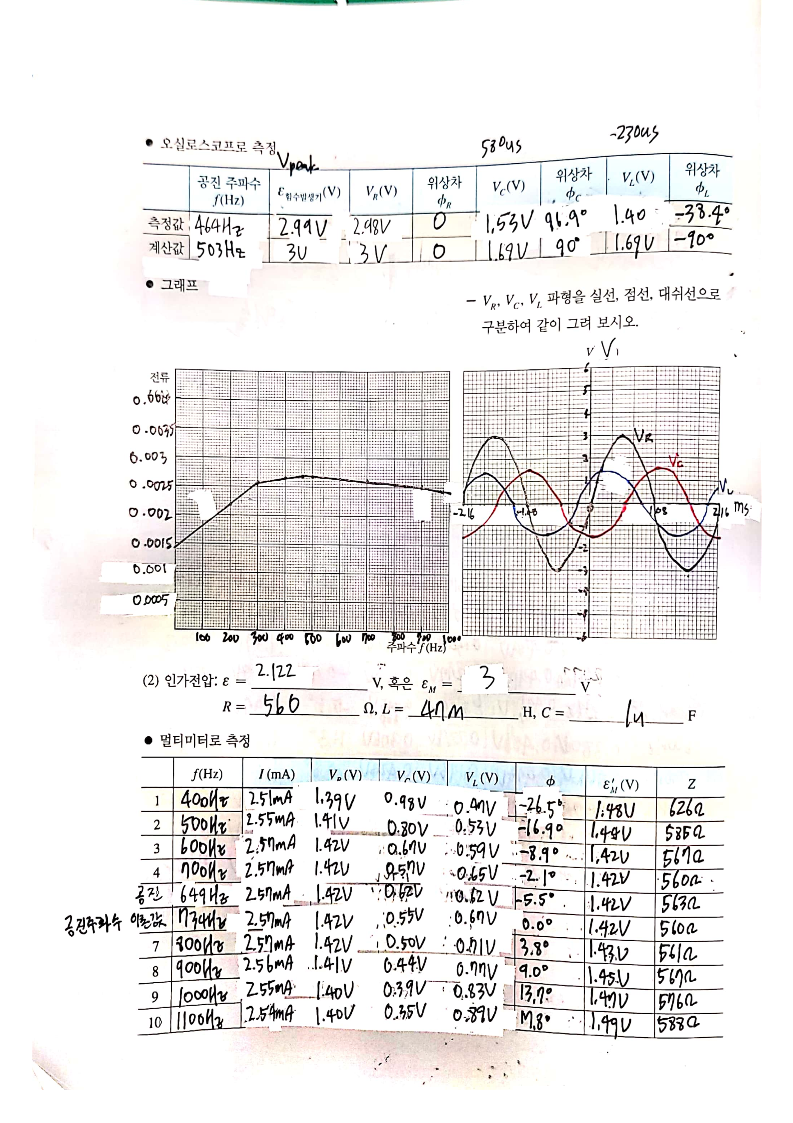 580us -230us
● 오실로스코프로 측정 Vpeak
공진 주파수 f(Hz) ε함수발생기(V) V_R(V) 위상차 ϕ_R V_C(V) 위상차 ϕ_C V_L(V) 위상차 ϕ_L
측정값 464Hz 2.99V 2.98V 0 1.53V 96.9° 1.40 -38.4°
계산값 503Hz 3V 3V 0 1.69V 90° 1.69V -90°
● 그래프
- V_R, V_C, V_L 파형을 실선, 점선, 대쉬선으로
구분하여 같이 그려 보시오.
전류
0.0035
0.003
0.0025
0.002
0.0015
0.001
0.0005
100 200 300 400 500 600 700 800 900 1000
주파수 f(Hz)
V
6
5
4
3
2
1
V_R
V_C
V_L
-2.16 -1.08 0 1.08 2.16 ms
-1
-2
-3
-4
-5
-6
(2) 인가전압: ε = 2.122 V, 혹은 ε_M = 3 V
R = 560 Ω, L = 47m H, C = 1u F
● 멀티미터로 측정
f(Hz) I(mA) V_R(V) V_C(V) V_L(V) ϕ ε′_M(V) Z
1 400Hz 2.51mA 1.39V 0.98V 0.47V -26.5° 1.48V 626Ω
2 500Hz 2.55mA 1.41V 0.80V 0.53V -16.9° 1.44V 585Ω
3 600Hz 2.57mA 1.42V 0.67V 0.59V -8.9° 1.42V 567Ω
4 700Hz 2.57mA 1.42V 0.57V 0.65V -2.1° 1.42V 560Ω
공진 649Hz 2.57mA 1.42V 0.62V 0.62V -5.5° 1.42V 563Ω
공진주파수 이론값 734Hz 2.57mA 1.42V 0.55V 0.67V 0.0° 1.42V 560Ω
7 800Hz 2.57mA 1.42V 0.50V 0.71V 3.8° 1.43V 561Ω
8 900Hz 2.56mA 1.41V 0.44V 0.77V 9.0° 1.45V 567Ω
9 1000Hz 2.55mA 1.40V 0.39V 0.83V 13.7° 1.47V 576Ω
10 1100Hz 2.54mA 1.40V 0.35V 0.89V 17.8° 1.49V 588Ω